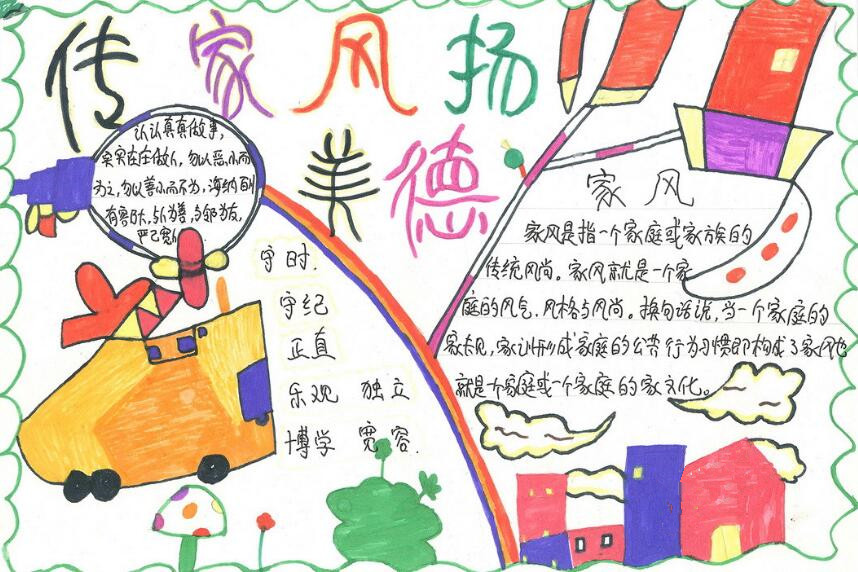 传家风扬
美德
认认真真做事，
实实在在做人，勿以恶小而
为之，勿以善小而不为，海纳百川
有容乃大，与人为善，与邻为友，
严己宽人
守时
守纪
正直
乐观 独立
博学 宽容
家风
家风是指一个家庭或家族的
传统风尚。家风就是一个家
庭的风气、风格与风尚。换句话说，当一个家庭的
家长见，家训形成家庭的公共行为习惯即构成了家风也
就是一个家庭或一个家庭的家文化。